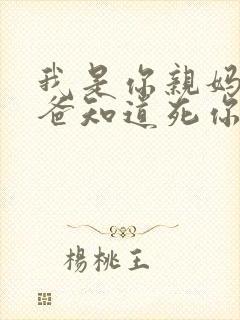 我是你親媽
爸知道死你
楊桃王